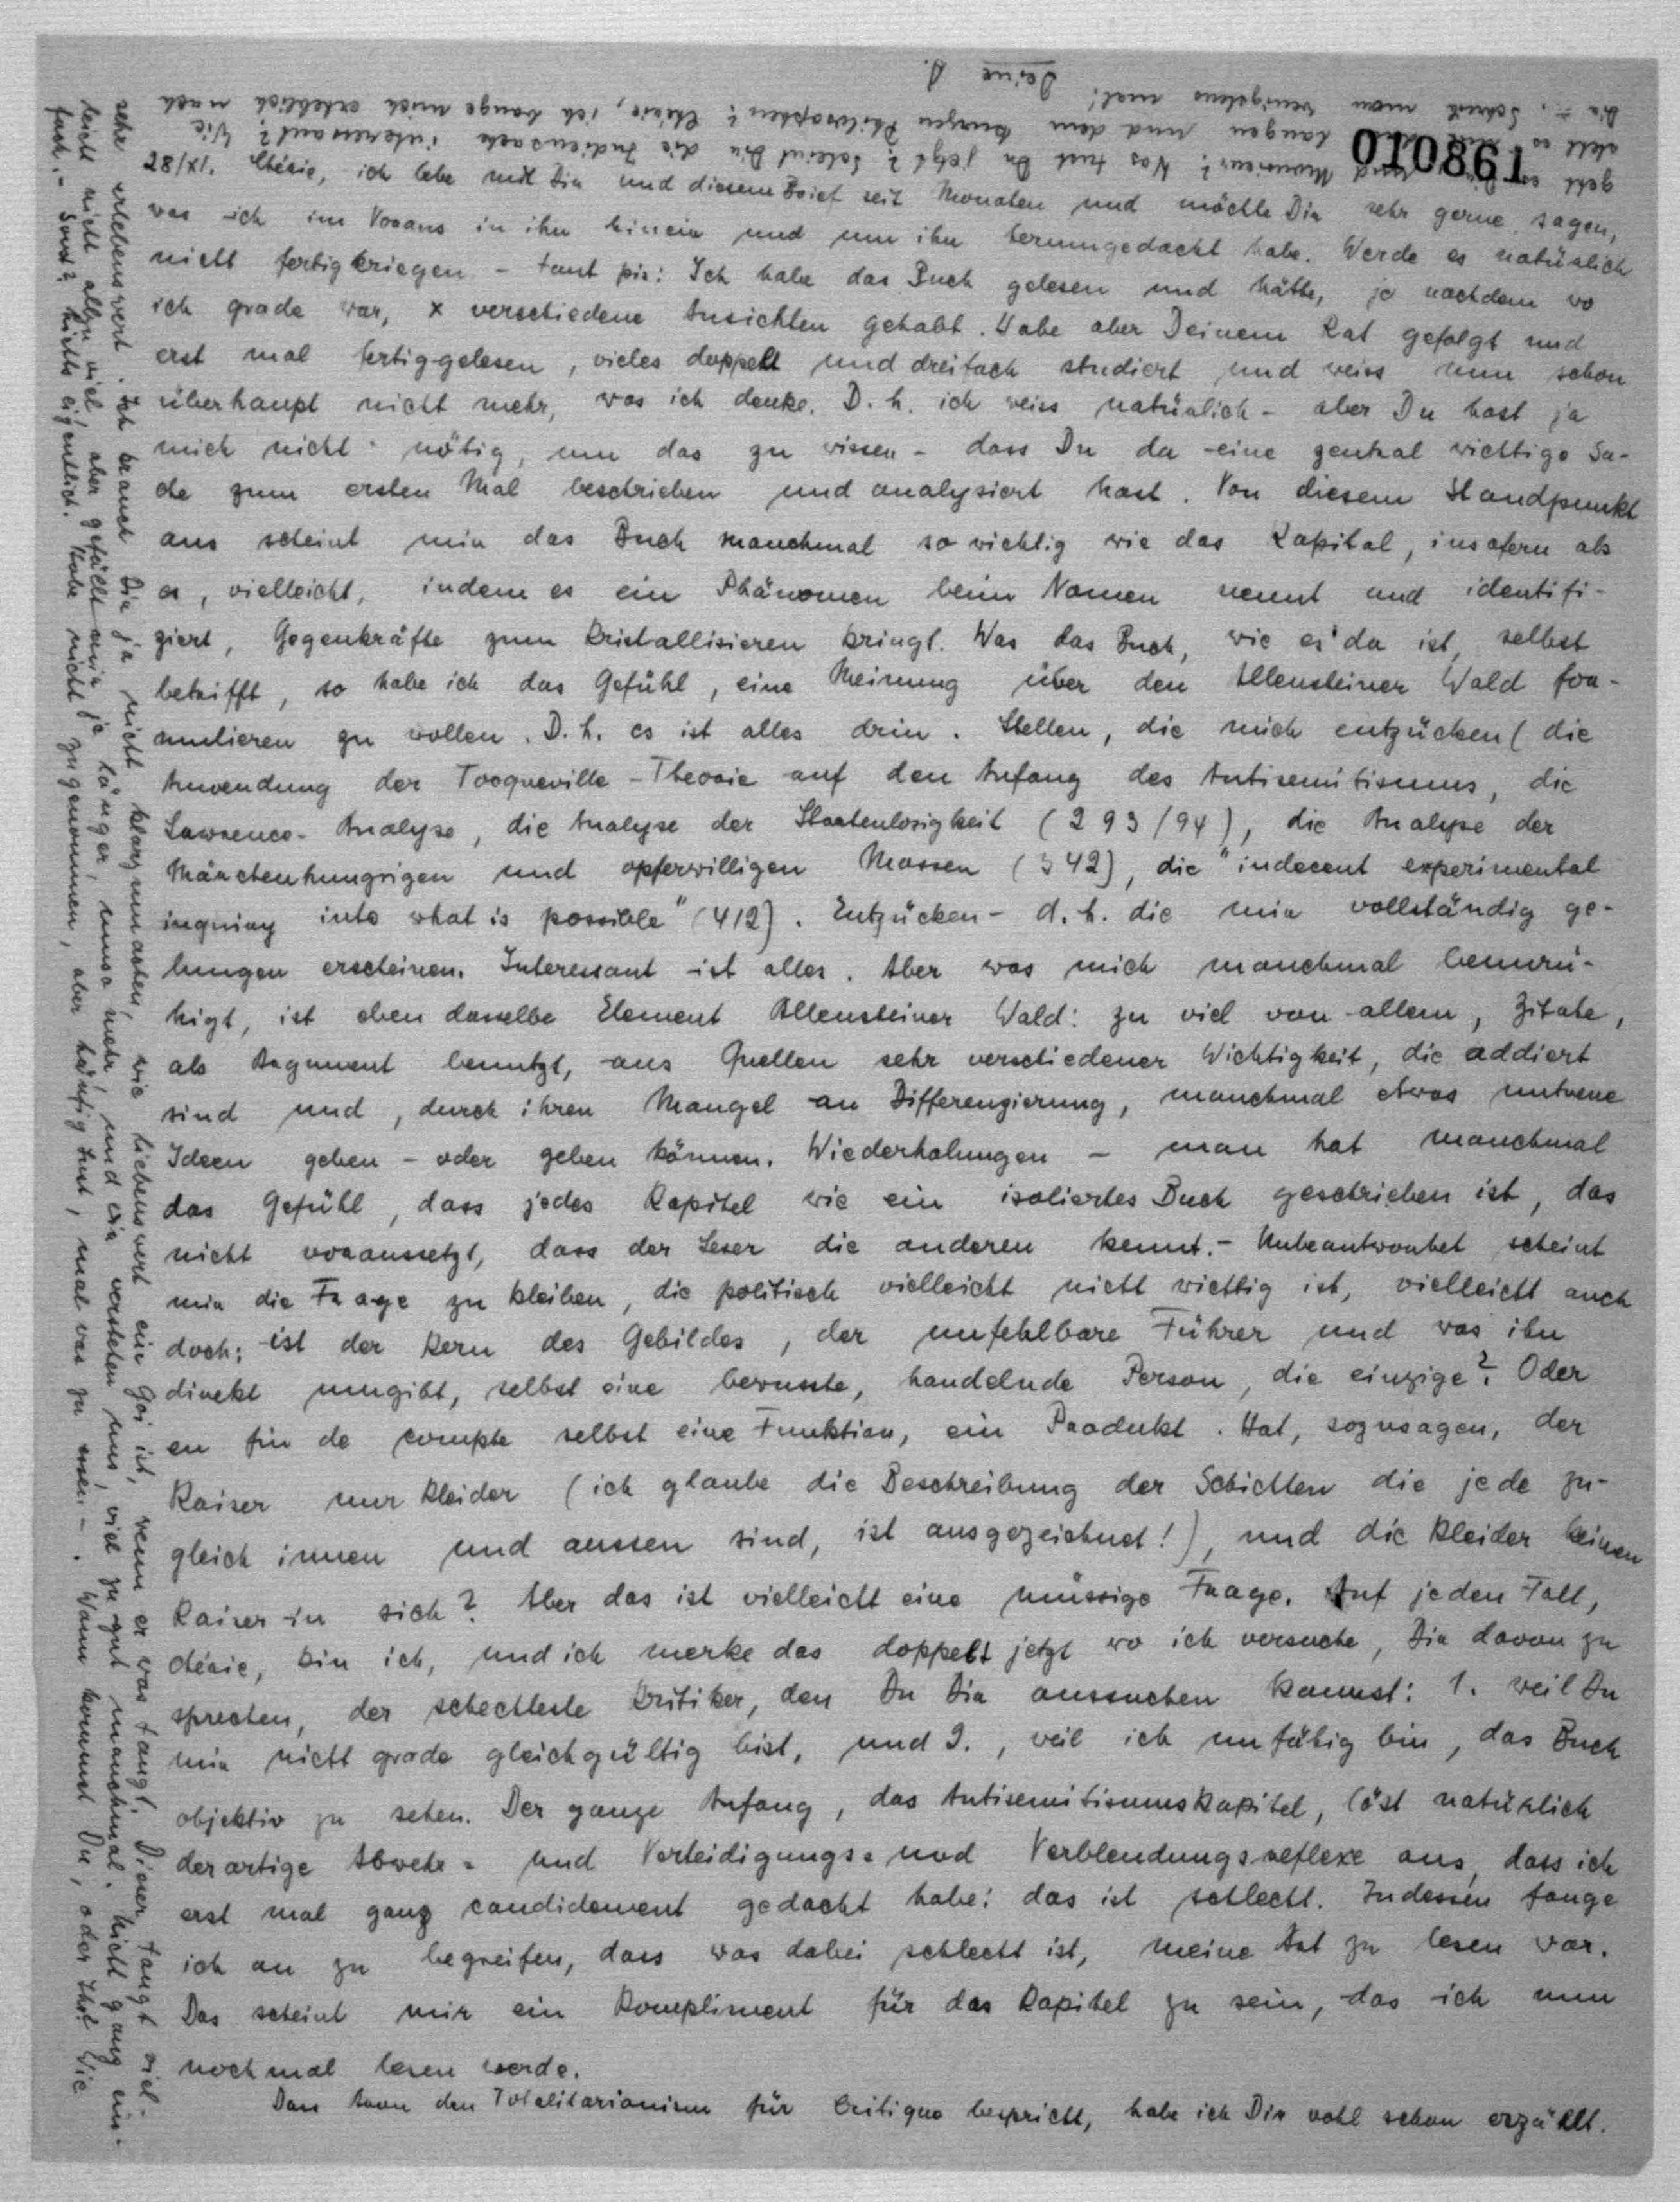 010861
28/XI. Chérie, ich lebe mit Dir und diesem Brief seit Monaten und möchte Dir sehr gerne sagen,
was ich im Voraus in ihn hinein und um ihn herumgedacht habe. Werde es natürlich
nicht fertigkriegen - tant pis: Ich habe das Buch gelesen und hätte, je nachdem wo
ich grade war, x verschiedene Ansichten gehabt. Habe aber Deinem Rat gefolgt und
erst mal fertig-gelesen, vieles doppelt und dreifach studiert und weiss nun schon
überhaupt nicht mehr, was ich denke. D.h. ich weiss natürlich - aber Du hast ja
mich nicht nötig, um das zu wissen - dass Du da eine zentral wichtige Sa-
che zum ersten Mal beschrieben und analysiert hast. Von diesem Standpunkt
aus scheint mir das Buch manchmal so wichtig wie das Kapital, insofern als
es, vielleicht, indem es ein Phänomen beim Namen nennt und identifi-
ziert, Gegenkräfte zum Kristallisieren bringt. Was das Buch, wie es da ist, selbst
betrifft, so habe ich das Gefühl, eine Meinung über den Allensteiner Wald for-
mulieren zu wollen. D.h. es ist alles drin. Stellen, die mich entzücken (die
Anwendung der Tocqueville-Theorie auf den Anfang des Antisemitismus, die
Lawrence-Analyse, die Analyse der Staatenlosigkeit (293/94), die Analyse der
Märchenhungrigen und opferwilligen Massen (342), die "indecent experimental
inquiry into what is possible" (412). Entzücken - d.h. die mir vollständig ge-
lungen erscheinen. Interessant ist alles. Aber was mich manchmal beunru-
higt, ist eben dasselbe Element Allensteiner Wald: zu viel von allem, Zitate,
als Argument benutzt, aus Quellen sehr verschiedener Wichtigkeit, die addiert
sind und, durch ihren Mangel an Differenzierung, manchmal etwas untreue
Ideen geben - oder geben können. Wiederholungen - man hat manchmal
das Gefühl, dass jedes Kapitel wie ein isoliertes Buch geschrieben ist, das
nicht voraussetzt, dass der Leser die anderen kennt. - Unbeantwortet scheint
mir die Frage zu bleiben, die politisch vielleicht nicht wichtig ist, vielleicht auch
doch: ist der Kern des Gebildes, der unfehlbare Führer und was ihn
direkt umgibt, selbst eine bewusste, handelnde Person, die einzige? Oder
en fin de compte selbst eine Funktion, ein Produkt. Hat, sozusagen, der
Kaiser nur Kleider (ich glaube die Beschreibung der Schichten die jede zu-
gleich innen und aussen sind, ist ausgezeichnet!), und die Kleider keinen
Kaiser in sich? Aber das ist vielleicht eine müssige Frage. Auf jeden Fall,
chérie, bin ich, und ich merke das doppelt jetzt wo ich versuche, Dir davon zu
sprechen, der schechteste Kritiker, den Du Dir aussuchen kannst: 1. weil Du
mir nicht grade gleichgültig bist, und 2., weil ich unfähig bin, das Buch
objektiv zu sehen. Der ganze Anfang, das Antisemitismuskapitel, löst natürlich
derartige Abwehr- und Verteidigungs- und Verblendungsreflexe aus, dass ich
erst mal ganz candidement gedacht habe: das ist schlecht. Indessen fange
ich an zu begreifen, dass was dabei schlecht ist, meine Art zu lesen war.
Das scheint mir ein Kompliment für das Kapitel zu sein, das ich nun
nochmal lesen werde.
Dass Aron den Totalitarianism für Critique bespricht, habe ich Dir wohl schon erzählt.
sehr erlebenswert. Ich brauch Dir ja nicht klarzumachen, wie liebenswert ein Goi ist, wenn er was taugt. Dieser taugt viel-
leicht nicht allzu viel, aber gefällt mir je länger, umso mehr, und wir verstehen uns, viel zu gut manchmal. Nicht ganz ein-
fach. - Sonst? Nichts eigentlich. Habe nicht zugenommen, aber häufig Lust, mal was zu essen -. Wann kommst Du, oder Ihr? Wie
geht es Monsieur? Was tust Du jetzt? Scheint Dir die Judensache interessant? Wie
steht es mit dem langen und dem kurzen Philosophen? Chérie, ich bange mich erheblich nach
Dir -. Schreib man wenigstens mal!
Deine A.